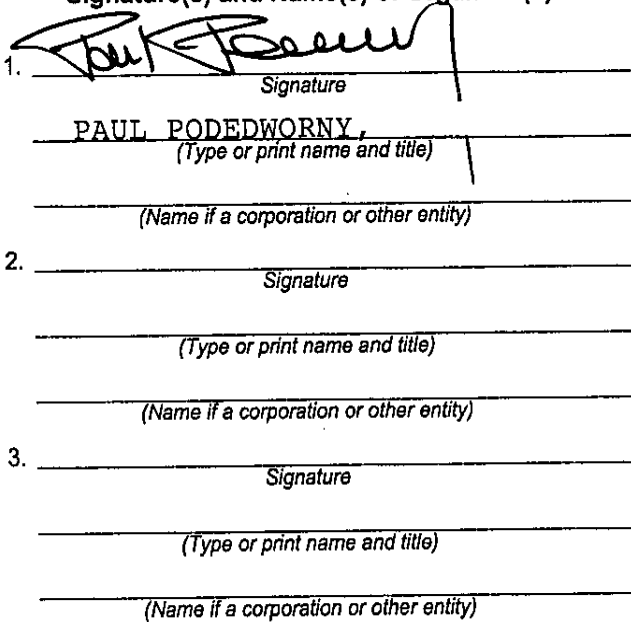 1.
Signature
PAUL PODEDWORNY,
(Type or print name and title)
(Name if a corporation or other entity)
2.
Signature
(Type or print name and title)
(Name if a corporation or other entity)
3.
Signature
(Type or print name and title)
(Name if a corporation or other entity)